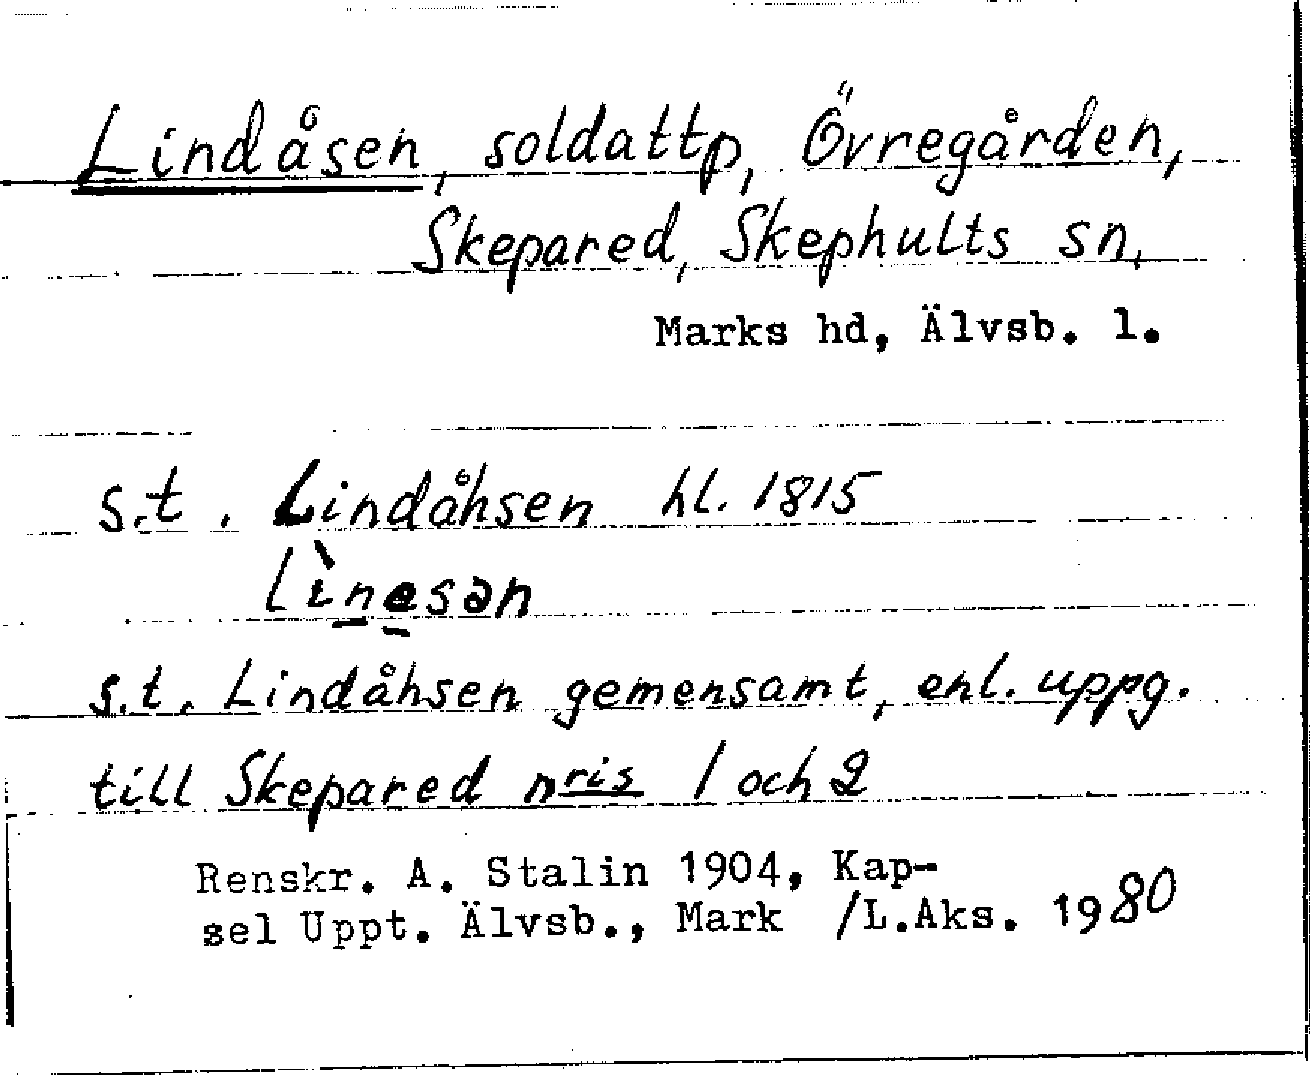 Lindåsen, soldattp, Övregården,
Skepared, Skephults sn,
Marks hd, Älvsb. l.
s.t. Lindåhsen hl. 1815
s.t. Lindåhsen gemensamt, enl. uppg.
till Skepared nris 1 och 2
Renskr. A. Stalin 1904, Kap-
sel Uppt. Älvsb., Mark /L.Aks. 1980